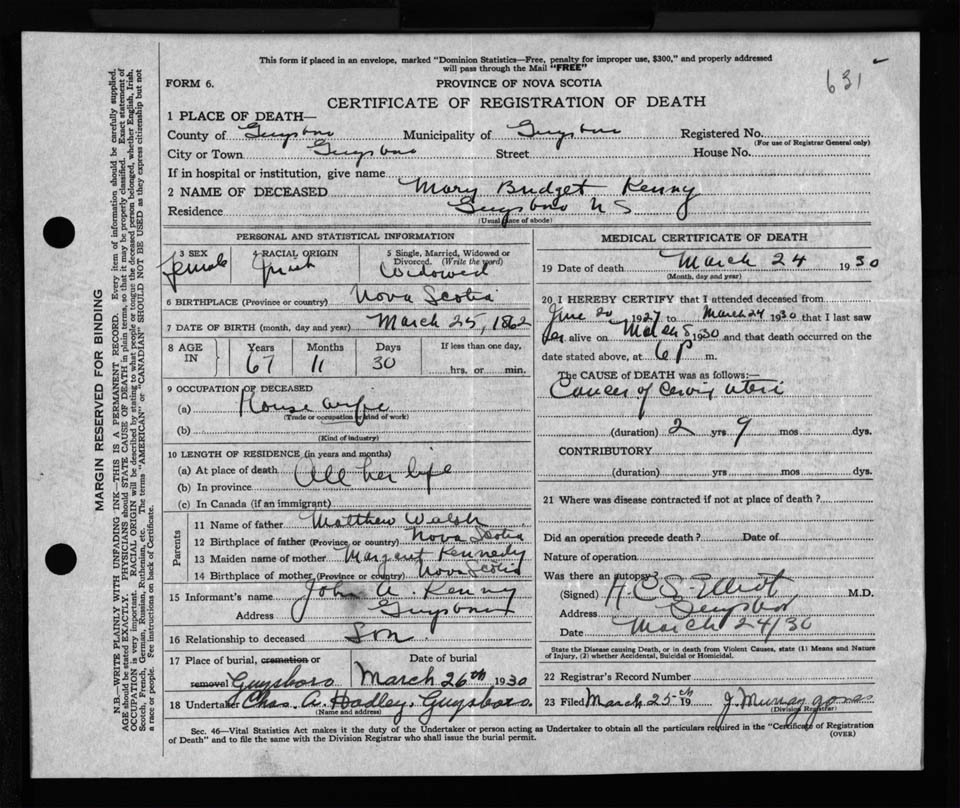 This form if placed in an envelope, marked "Dominion Statistics—Free, penalty for improper use, $300," and properly addressed
will pass through the Mail "FREE"
631
FORM 6. PROVINCE OF NOVA SCOTIA
CERTIFICATE OF REGISTRATION OF DEATH
1 PLACE OF DEATH—
County of Guysboro Municipality of Guysboro Registered No.
(For use of Registrar General only)
City or Town Guysboro Street House No.
If in hospital or institution, give name
2 NAME OF DECEASED Mary Bridget Kenny
Residence Guysboro N S
(Usual place of abode)
PERSONAL AND STATISTICAL INFORMATION
3 SEX Female
4 RACIAL ORIGIN Irish
5 Single, Married, Widowed or Divorced. (Write the word) Widowed
6 BIRTHPLACE (Province or country) Nova Scotia
7 DATE OF BIRTH (month, day and year) March 25, 1862
8 AGE IN Years Months Days If less than one day,
67 11 30 hrs. or min.
9 OCCUPATION OF DECEASED
(a) House wife
(Trade or occupation or kind of work)
(b)
(Kind of industry)
10 LENGTH OF RESIDENCE (in years and months)
(a) At place of death All her life
(b) In province
(c) In Canada (if an immigrant)
Parents
11 Name of father Matthew Walsh
12 Birthplace of father (Province or country) Nova Scotia
13 Maiden name of mother Margaret Kennedy
14 Birthplace of mother (Province or country) Nova Scotia
15 Informant's name John A. Kenny
Address Guysboro
16 Relationship to deceased Son
17 Place of burial, cremation or Date of burial
removal Guysboro March 26th 1930
18 Undertaker Chas. A. Hadley, Guysboro.
(Name and address)
MEDICAL CERTIFICATE OF DEATH
19 Date of death March 24 1930
(Month, day and year)
20 I HEREBY CERTIFY that I attended deceased from
June 20 1927 to March 24 1930 that I last saw
her alive on March 1930 and that death occurred on the
date stated above, at 6 p m.
The CAUSE of DEATH was as follows:—
Cancer of Cervix Uteri
(duration) 2 yrs 9 mos dys.
CONTRIBUTORY
(duration) yrs mos dys.
21 Where was disease contracted if not at place of death?
Did an operation precede death? Date of
Nature of operation
Was there an autopsy
(Signed) H.C.S. Elliot M.D.
Address Guysboro
Date March 24/30
State the Disease causing Death, or in death from Violent Causes, state (1) Means and Nature
of Injury, (2) whether Accidental, Suicidal or Homicidal.
22 Registrar's Record Number
23 Filed March 25th 19 J. Murray Jones
(Division Registrar)
Sec. 46—Vital Statistics Act makes it the duty of the Undertaker or person acting as Undertaker to obtain all the particulars required in the "Certificate of Registration
of Death" and to file the same with the Division Registrar who shall issue the burial permit. (OVER)
MARGIN RESERVED FOR BINDING
N.B.—WRITE PLAINLY WITH UNFADING INK—THIS IS A PERMANENT RECORD. Every item of information should be carefully supplied.
AGE should be stated EXACTLY. PHYSICIANS should STATE CAUSE OF DEATH in plain terms, so that it may be properly classified. Exact statement of
OCCUPATION is very important. RACIAL ORIGIN will be described by stating to what people or tongue the deceased person belonged, whether English, Irish,
Scotch, French, German, Russian, Ruthenian, etc. The terms "AMERICAN" or "CANADIAN" SHOULD NOT BE USED as they express citizenship but not
a race or people. See instructions on back of Certificate.